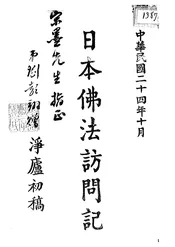 1367
中華民國二十四年十月
日本佛法訪問記
淨廬初稿
宗墨先生指正
弟劉彭翊贈